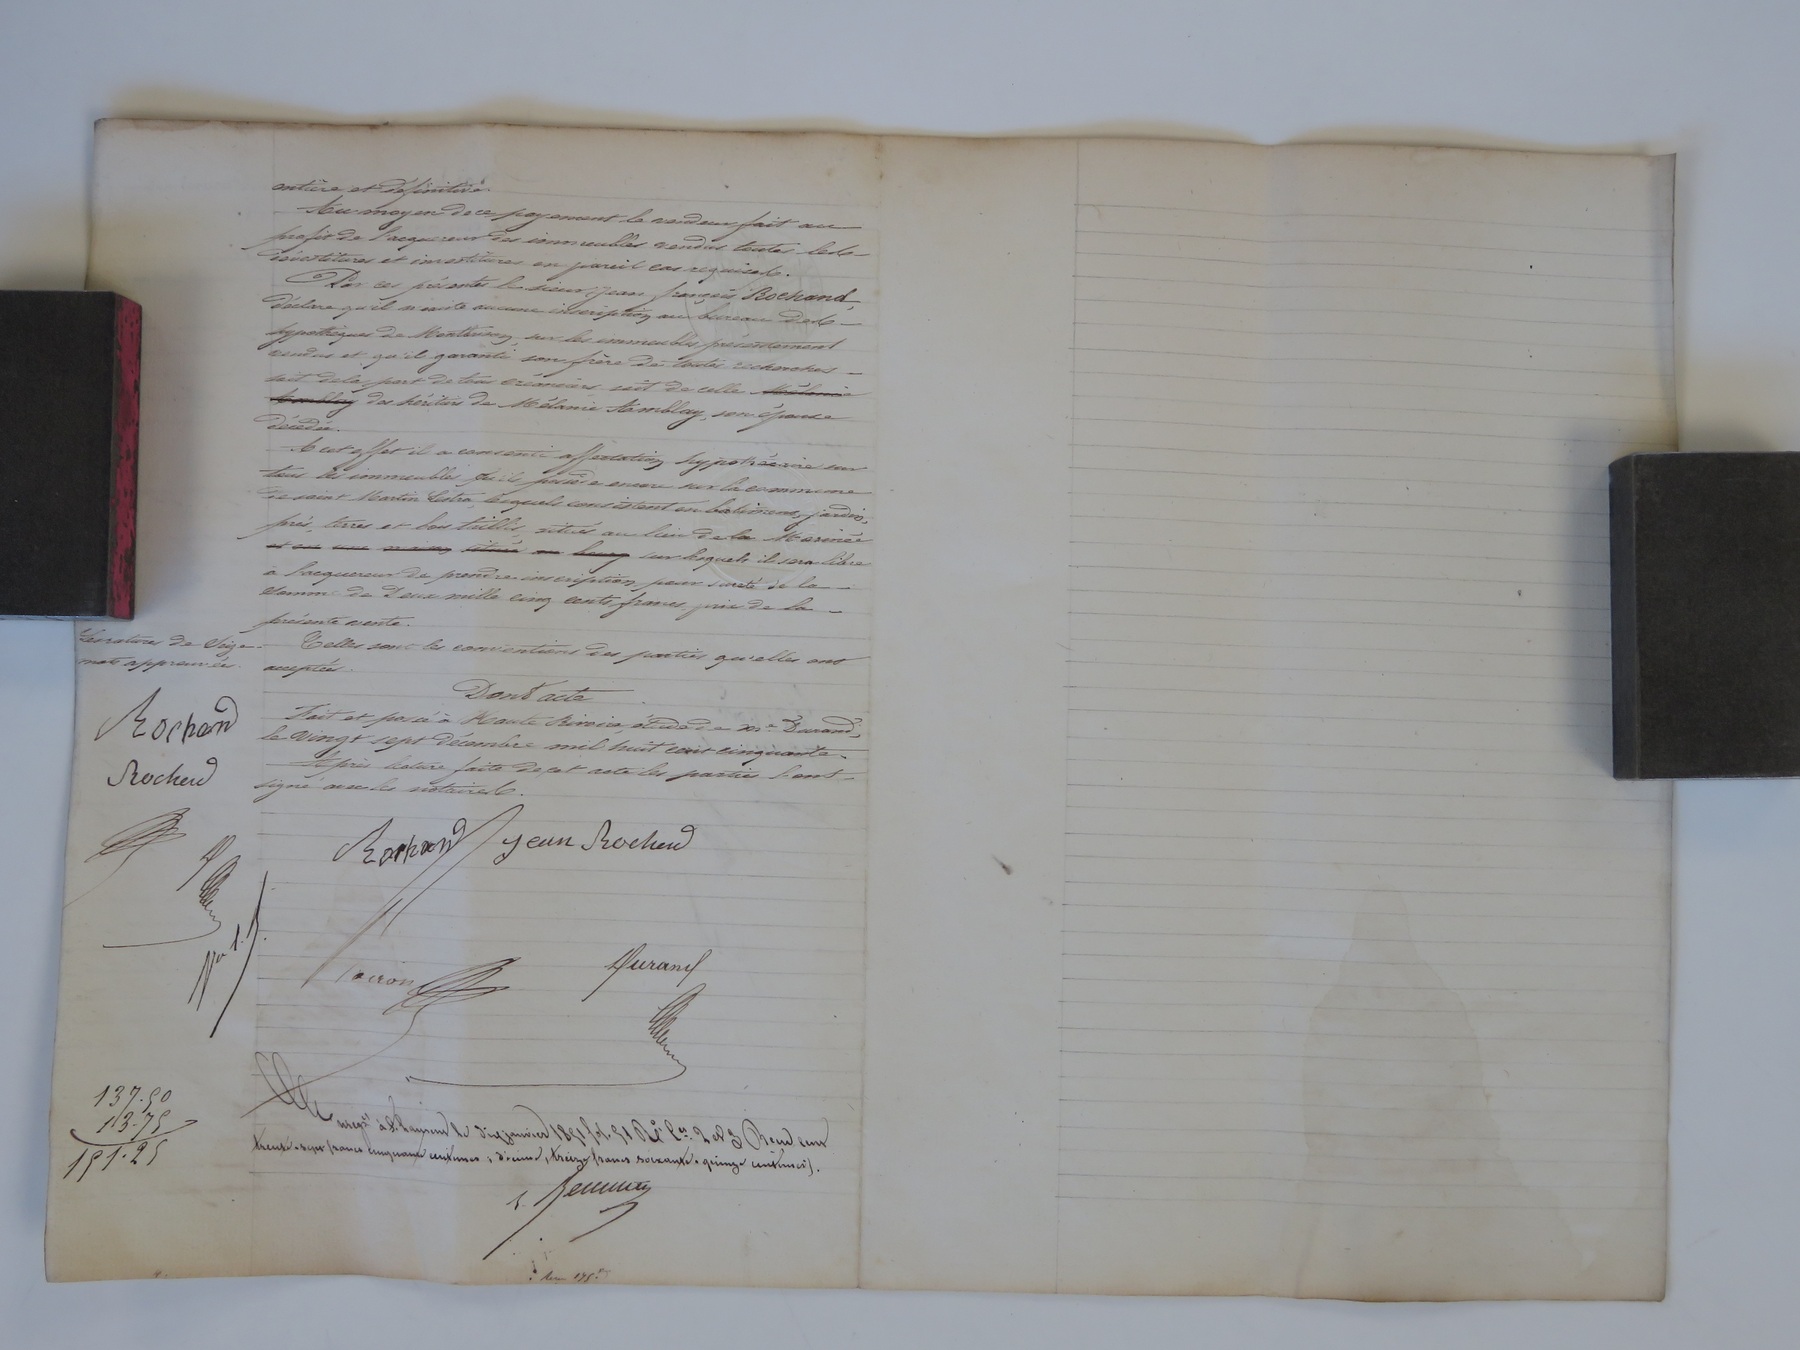 entière et définitive.
Au moyen de ce payement le vendeur fait au
profit de l'acquéreur des immeubles vendus toutes les
dévestitures et investitures en pareil cas requises.
Par ces présentes le sieur Jean françois Rochand,
déclare qu'il n'existe aucune inscription au bureau des
hypothèques de Montbrison, sur les immeubles présentement
vendus et qu'il garantit son frère de toutes recherches
soit de la part de tous créanciers soit de celle Mélanie
Amblay des héritiers de Mélanie Amblay, son épouse
décédée.
A cet effet il a consenti affectation hypothécaire sur
tous les immeubles qu'il possède encore sur la commune
de saint Martin Lestra, lesquels consistent en batiment, jardin,
prés, terres et bois taillis, situés au lieu de la
et sur une maison située au bourg sur lesquels il sera libre
à l'acquereur de prendre inscription pour sureté de la
somme de Deux mille cinq cents francs, prix de la
présente vente.
Telles sont les conventions des parties qu'elles ont
acceptées.
Les ratures de Seize
mots approuvées.
Dont acte
Fait et passé à Haute Rivoire, étude de Me Durand,
le vingt sept décembre mil huit cent cinquante.
Après lecture faite de cet acte les parties l'ont
signé avec les notaires.
Rochand
Rochend
Rochand Jean Rochend
Durand
137.50
13.75
151.25
le dix janvier 1851 f. 51 Ro Cn. 2 et 3 Reçu cent
trente-sept francs cinquante centimes ; décime, treize francs soixante-quinze centimes).